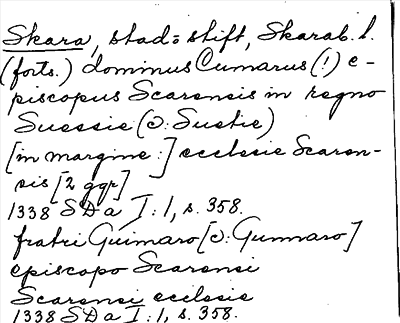 Skara, stad o stift, Skarab. l.
(forts.) dominus Cumarus (!) e-
piscopus Scarensis in regno
Suessie (ɔ: Suetie)
[in margine:] ecclesie Scaren-
sis [2 ggr]
1338 SDa I:1, s. 358.
fratri Guimaro [ɔ: Gunnaro]
episcopo Scarensi
Scarensi ecclesie
1338 SDa I:1, s. 358.